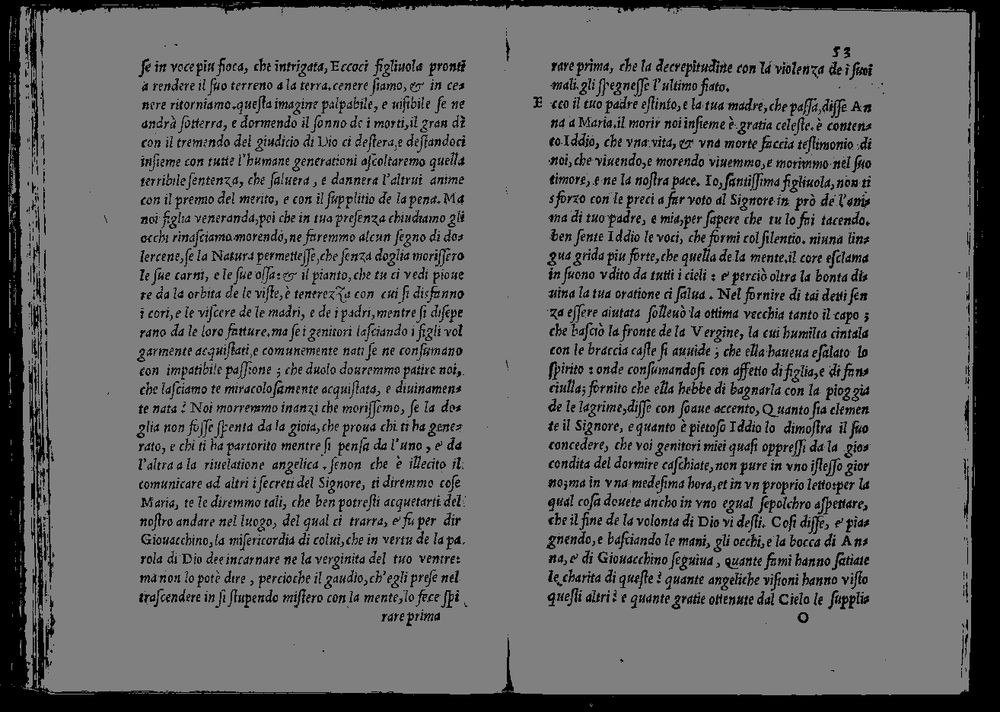 se in voce piu fioca, che intrigata, Eccoci figliuola pronti
a rendere il suo terreno a la terra. cenere siamo, & in ce-
nere ritorniamo. questa imagine palpabile, e uisibile se ne
andrà sotterra, e dormendo il sonno de i morti, il gran dì
con il tremendo del giudicio di Dio ci destera, e destandoci
insieme con tutte l'humane generationi ascoltaremo quella
terribile sentenza, che saluera, e dannera l'altrui anime
con il premio del merito, e con il supplitio de la pena. Ma
noi figlia veneranda, poi che in tua presenza chiudiamo gli
occhi rinasciamo morendo, ne faremmo alcun segno di do-
lercene, se la Natura permettesse, che senza doglia morissero
le sue carni, e le sue ossa: & il pianto, che tu ci vedi pioue
re da la orbita de le viste, è tenerezza con cui si disfanno
i cori, e le viscere de le madri, e de i padri, mentre si disepe
rano da le loro fatture, ma se i genitori lasciando i figli vol
garmente acquistati, e comunemente nati se ne consumano
con impatibile passione; che duolo douremmo patire noi,
che lasciamo te miracolosamente acquistata, e diuinamen-
te nata? Noi morremmo inanzi che morissemo, se la do-
glia non fosse spenta da la gioia, che proua chi ti ha gene-
rato, e chi ti ha partorito mentre si pensa da l'uno, e da
l'altra a la riuelatione angelica. senon che è illecito il
comunicare ad altri i secreti del Signore, ti diremmo cose
Maria, te le diremmo tali, che ben potresti acquetarti del
nostro andare nel luogo, del qual ci trarra, e fu per dir
Giouacchino, la misericordia di colui, che in vertu de la pa-
rola di Dio dee incarnare ne la verginita del tuo ventre:
ma non lo potè dire, percioche il gaudio, ch'egli prese nel
trascendere in si stupendo mistero con la mente, lo fece spi
rare prima
53
rare prima, che la decrepitudine con la violenza de i suoi
mali, gli spegnesse l'ultimo fiato.
E cco il tuo padre estinto, e la tua madre, che passa, disse An
na a Maria. il morir noi insieme è gratia celeste. è conten-
to Iddio, che vna vita, & vna morte faccia testimonio di
noi, che viuendo, e morendo viuemmo, e morimmo nel suo
timore, e ne la nostra pace. Io, santissima figliuola, non ti
sforzo con le preci a far voto al Signore in prò de l'ani-
ma di tuo padre, e mia, per sapere che tu lo fai tacendo.
ben sente Iddio le voci, che formi col silentio. niuna lin-
gua grida piu forte, che quella de la mente. il core esclama
in suono vdito da tutti i cieli: e perciò oltra la bonta di-
uina la tua oratione ci salua. Nel fornire di tai detti sen
za essere aiutata solleuò la ottima vecchia tanto il capo;
che basciò la fronte de la Vergine, la cui humilta cintala
con le braccia caste si auuide; che ella haueua esalato lo
spirito: onde consumandosi con affetto di figlia, e di fan-
ciulla; fornito che ella hebbe di bagnarla con la pioggia
de le lagrime, disse con soaue accento, Quanto sia clemen
te il Signore, e quanto è pietoso Iddio lo dimostra il suo
concedere, che voi genitori miei quasi oppressi da la gio-
condita del dormire caschiate, non pure in vno istesso gior
no; ma in vna medesima hora, et in vn proprio letto: per la
qual cosa douete ancho in vno egual sepolchro aspettare,
che il fine de la volonta di Dio vi desti. Cosi disse, e pia-
gnendo, e basciando le mani, gli occhi, e la bocca di An-
na, e di Giouacchino seguiua, quante fami hanno satiate
le charita di queste? quante angeliche visioni hanno visto
questi altri? e quante gratie ottenute dal Cielo le supplia
O